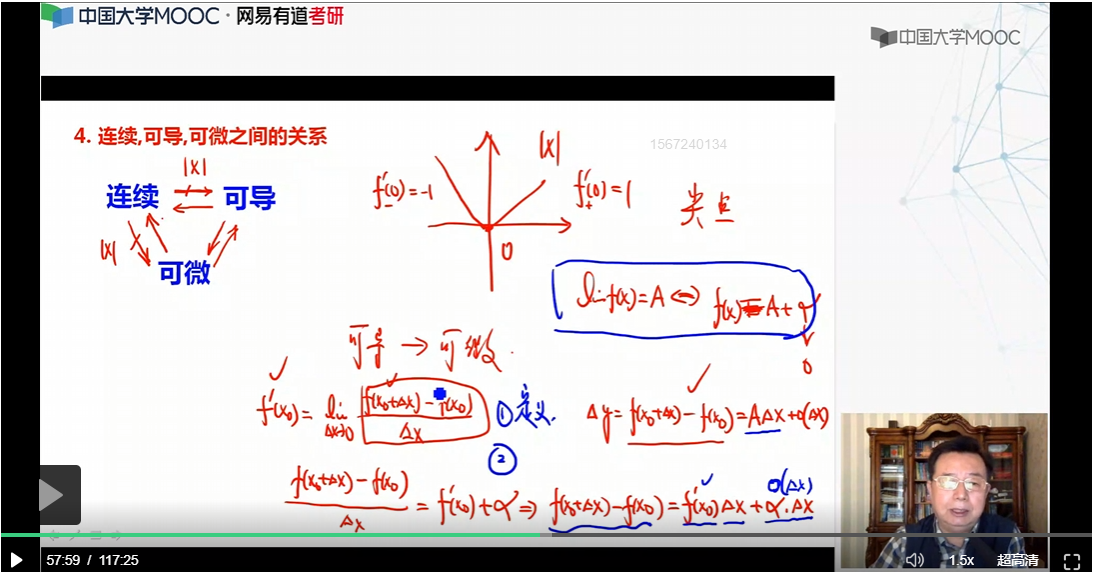 中国大学MOOC · 网易有道考研
中国大学MOOC
4. 连续,可导,可微之间的关系
1567240134
|x|
连续 可导
|x|
可微
f'₋(0)=-1
|x|
f'₊(0)=1
尖点
0
lim f(x)=A ⇔ f(x)=A+α
0
可导 → 可微.
f'(x₀)= lim Δx→0 f(x₀+Δx)-f(x₀) / Δx
① 定义.
Δy = f(x₀+Δx)-f(x₀)=AΔx+o(Δx)
②
f(x₀+Δx)-f(x₀) / Δx = f'(x₀)+α ⇒ f(x₀+Δx)-f(x₀)=f'(x₀)Δx+α·Δx
o(Δx)
57:59 / 117:25
1.5x 超高清